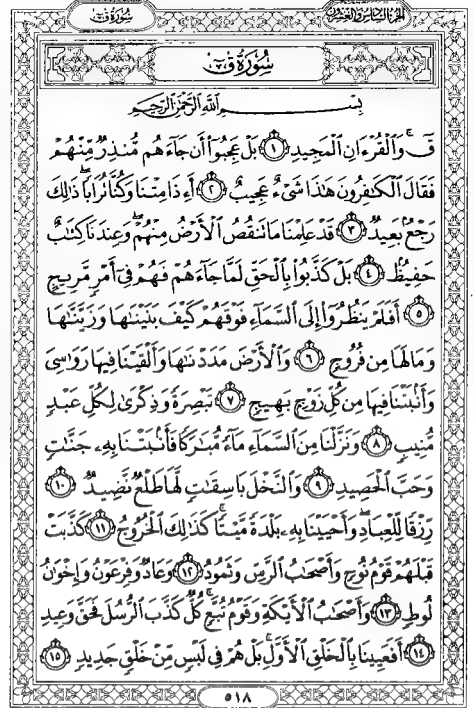 الجزء السادس والعشرون
سُورَةُ قٓ
سُورَةُ قٓ
بِسْمِ ٱللَّهِ ٱلرَّحْمَٰنِ ٱلرَّحِيمِ
قٓ ۚ وَٱلْقُرْءَانِ ٱلْمَجِيدِ ١ بَلْ عَجِبُوٓا۟ أَن جَآءَهُم مُّنذِرٌ مِّنْهُمْ
فَقَالَ ٱلْكَٰفِرُونَ هَٰذَا شَىْءٌ عَجِيبٌ ٢ أَءِذَا مِتْنَا وَكُنَّا تُرَابًا ۖ ذَٰلِكَ
رَجْعٌۢ بَعِيدٌ ٣ قَدْ عَلِمْنَا مَا تَنقُصُ ٱلْأَرْضُ مِنْهُمْ ۖ وَعِندَنَا كِتَٰبٌ
حَفِيظٌۢ ٤ بَلْ كَذَّبُوا۟ بِٱلْحَقِّ لَمَّا جَآءَهُمْ فَهُمْ فِىٓ أَمْرٍ مَّرِيجٍ
٥ أَفَلَمْ يَنظُرُوٓا۟ إِلَى ٱلسَّمَآءِ فَوْقَهُمْ كَيْفَ بَنَيْنَٰهَا وَزَيَّنَّٰهَا
وَمَا لَهَا مِن فُرُوجٍ ٦ وَٱلْأَرْضَ مَدَدْنَٰهَا وَأَلْقَيْنَا فِيهَا رَوَٰسِىَ
وَأَنۢبَتْنَا فِيهَا مِن كُلِّ زَوْجٍۭ بَهِيجٍ ٧ تَبْصِرَةً وَذِكْرَىٰ لِكُلِّ عَبْدٍ
مُّنِيبٍ ٨ وَنَزَّلْنَا مِنَ ٱلسَّمَآءِ مَآءً مُّبَٰرَكًا فَأَنۢبَتْنَا بِهِۦ جَنَّٰتٍ
وَحَبَّ ٱلْحَصِيدِ ٩ وَٱلنَّخْلَ بَاسِقَٰتٍ لَّهَا طَلْعٌ نَّضِيدٌ ١٠
رِّزْقًا لِّلْعِبَادِ ۖ وَأَحْيَيْنَا بِهِۦ بَلْدَةً مَّيْتًا ۚ كَذَٰلِكَ ٱلْخُرُوجُ ١١ كَذَّبَتْ
قَبْلَهُمْ قَوْمُ نُوحٍ وَأَصْحَٰبُ ٱلرَّسِّ وَثَمُودُ ١٢ وَعَادٌ وَفِرْعَوْنُ وَإِخْوَٰنُ
لُوطٍ ١٣ وَأَصْحَٰبُ ٱلْأَيْكَةِ وَقَوْمُ تُبَّعٍ ۚ كُلٌّ كَذَّبَ ٱلرُّسُلَ فَحَقَّ وَعِيدِ
١٤ أَفَعَيِينَا بِٱلْخَلْقِ ٱلْأَوَّلِ ۚ بَلْ هُمْ فِى لَبْسٍ مِّنْ خَلْقٍ جَدِيدٍ ١٥
٥١٨